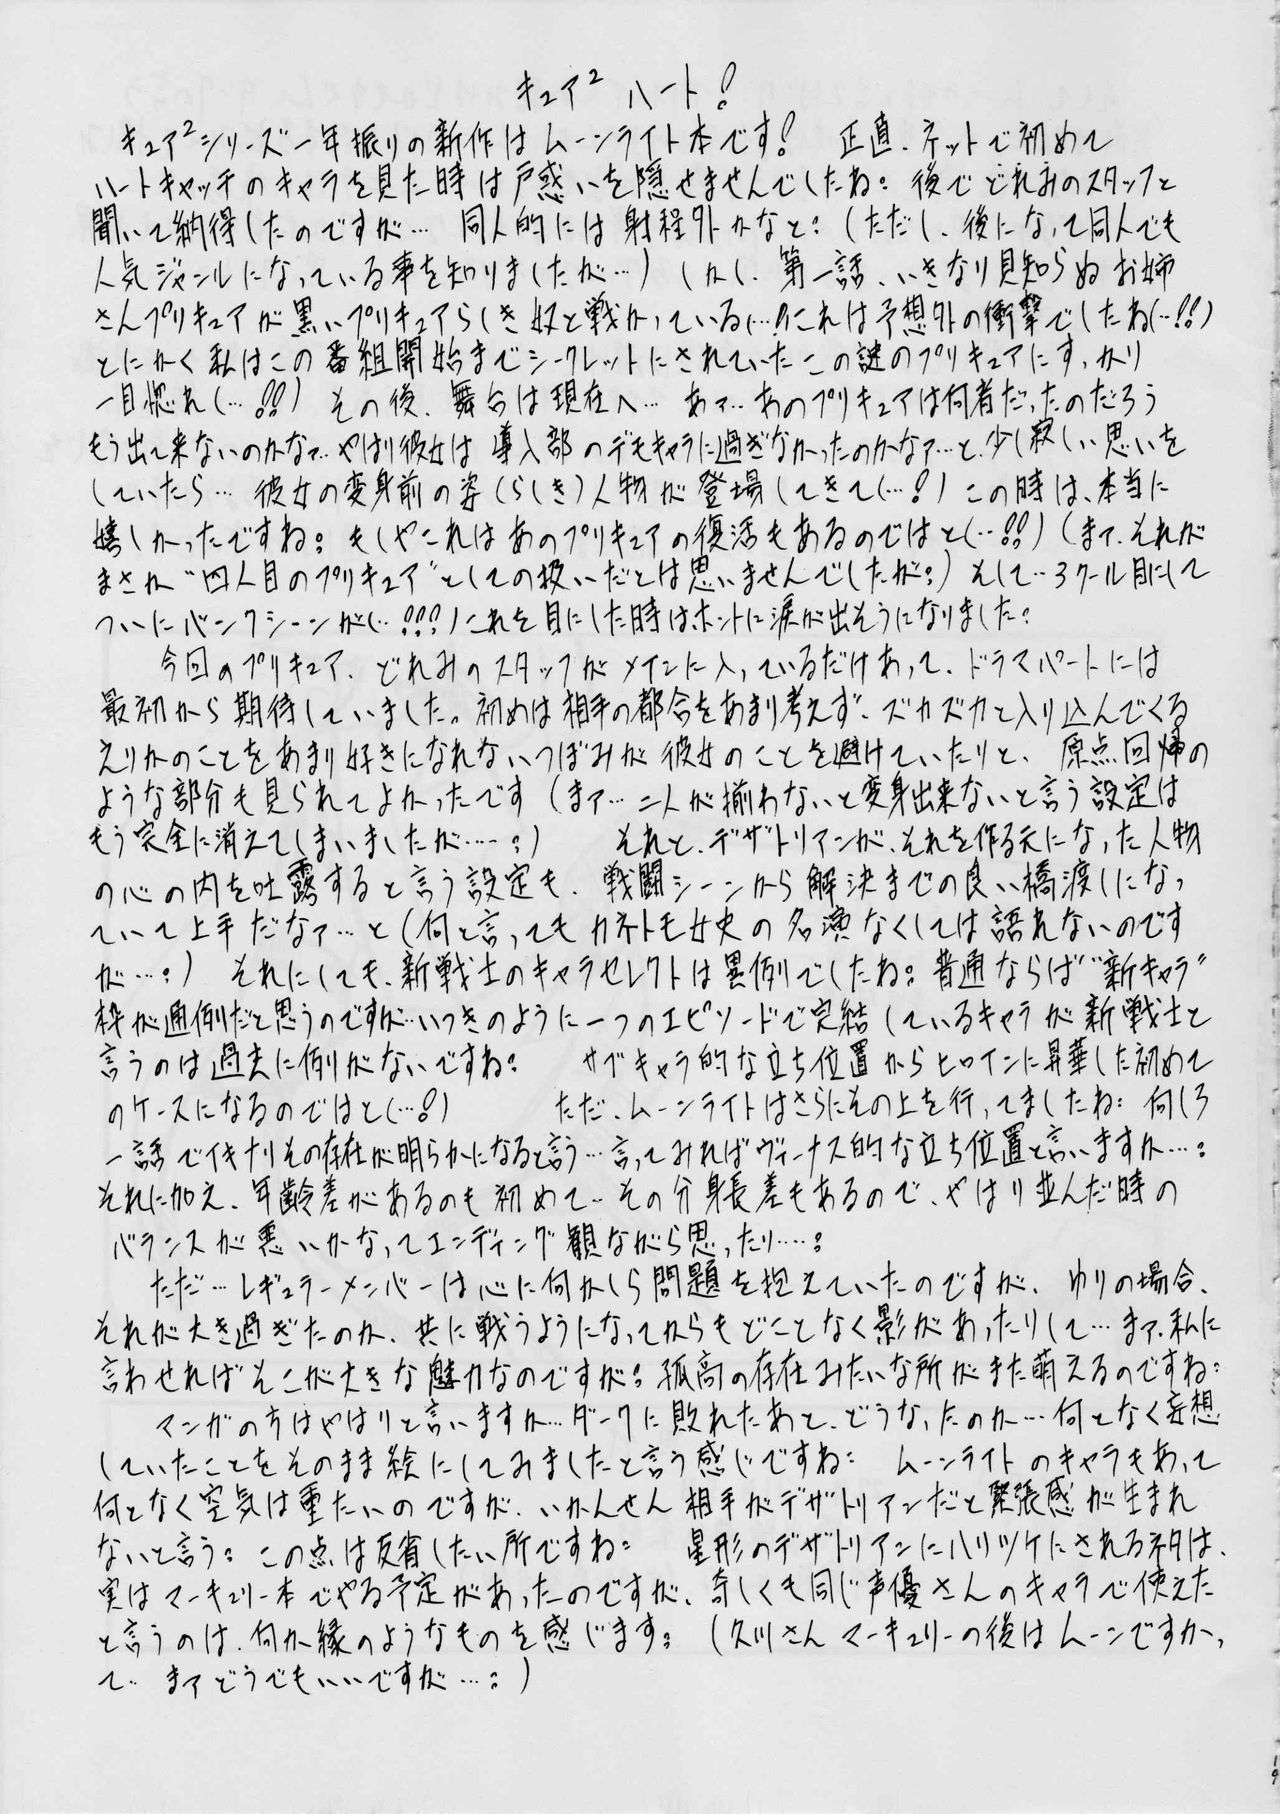 キュア² ハート!
キュア²シリーズ一年振りの新作はムーンライト本です! 正直、ネットで初めて
ハートキャッチのキャラを見た時は戸惑いを隠せませんでしたね: 後でどれみのスタッフと
聞いて納得したのですが… 同人的には射程外かなと: (ただし、後になって同人でも
人気ジャンルになっている事を知りましたが…) しかし、第一話、いきなり見知らぬお姉
さんプリキュアが黒いプリキュアらしき奴と戦かっている(…!)これは予想外の衝撃でしたね(…!!)
とにかく私はこの番組開始までシークレットにされていたこの謎のプリキュアにすっかり
一目惚れ(…!!) その後、舞台は現在へ… あァ…あのプリキュアは何者だったのだろう
もう出て来ないのかなァ…やはり彼女は導入部のデモキャラに過ぎなかったのかなァ…と、少し寂しい思いを
していたら… 彼女の変身前の姿(らしき)人物が登場してきて(…!) この時は、本当に
嬉しかったですね: もしやこれはあのプリキュアの復活もあるのではと(…!!) (まァ、それが
まさか“四人目のプリキュア”としての扱いだとは思いませんでしたが:) そして…3クール目にして
ついにバンクシーンが(…!!!)これを目にした時は、ホントに涙が出そうになりました:
今回のプリキュア、どれみのスタッフがメインに入っているだけあって、ドラマパートには
最初から期待していました。初めは相手の都合をあまり考えず、ズカズカと入り込んでくる
えりかのことをあまり好きになれないつぼみが彼女のことを避けていたりと、原点回帰の
ような部分も見られてよかったです (まァ…二人が揃わないと変身出来ないと言う設定は
もう完全に消えてしまいましたが……:) それと、デザトリアンが、それを作る元になった人物
の心の内を吐露すると言う設定も、戦闘シーンから解決までの良い橋渡しになっ
ていて上手だなァ…と(何と言ってもカネトモ女史の名演なくしては語れないのです
が…:) それにしても、新戦士のキャラセレクトは異例でしたね: 普通ならば“新キャラ”
枠が通例だと思うのですが…いつきのように一つのエピソードで完結しているキャラが新戦士と
言うのは過去に例がないですね: サブキャラ的な立ち位置からヒロインに昇華した初めて
のケースになるのではと(…!) ただ、ムーンライトはさらにその上を行ってましたね: 何しろ
一話でイキナリその存在が明らかになると言う…言ってみればヴィーナス的な立ち位置と言いますか…:
それに加え、年齢差があるのも初めて…その分身長差もあるので、やはり並んだ時の
バランスが悪いかなってエンディング観ながら思ったり……:
ただ…レギュラーメンバーは心に何かしら問題を抱えていたのですが、ゆりの場合、
それが大き過ぎたのか、共に戦うようになってからもどことなく影があったりして…まァ、私に
言わせればそこが大きな魅力なのですが: 孤高の存在みたいな所がまた萌えるのですね:
マンガの方はやはりと言いますか…ダークに敗れたあと、どうなったのか…何となく妄想
していたことをそのまま絵にしてみましたと言う感じですね: ムーンライトのキャラもあって
何となく空気は重たいのですが、いかんせん相手がデザトリアンだと緊張感が生まれ
ないと言う: この点は反省したい所ですね: 星形のデザトリアンにハリツケにされるネタは、
実はマーキュリー本でやる予定があったのですが、奇しくも同じ声優さんのキャラで使えた
と言うのは、何か縁のようなものを感じます: (久川さんマーキュリーの後はムーンですかっ
て… まァどうでもいいですが…:)
19